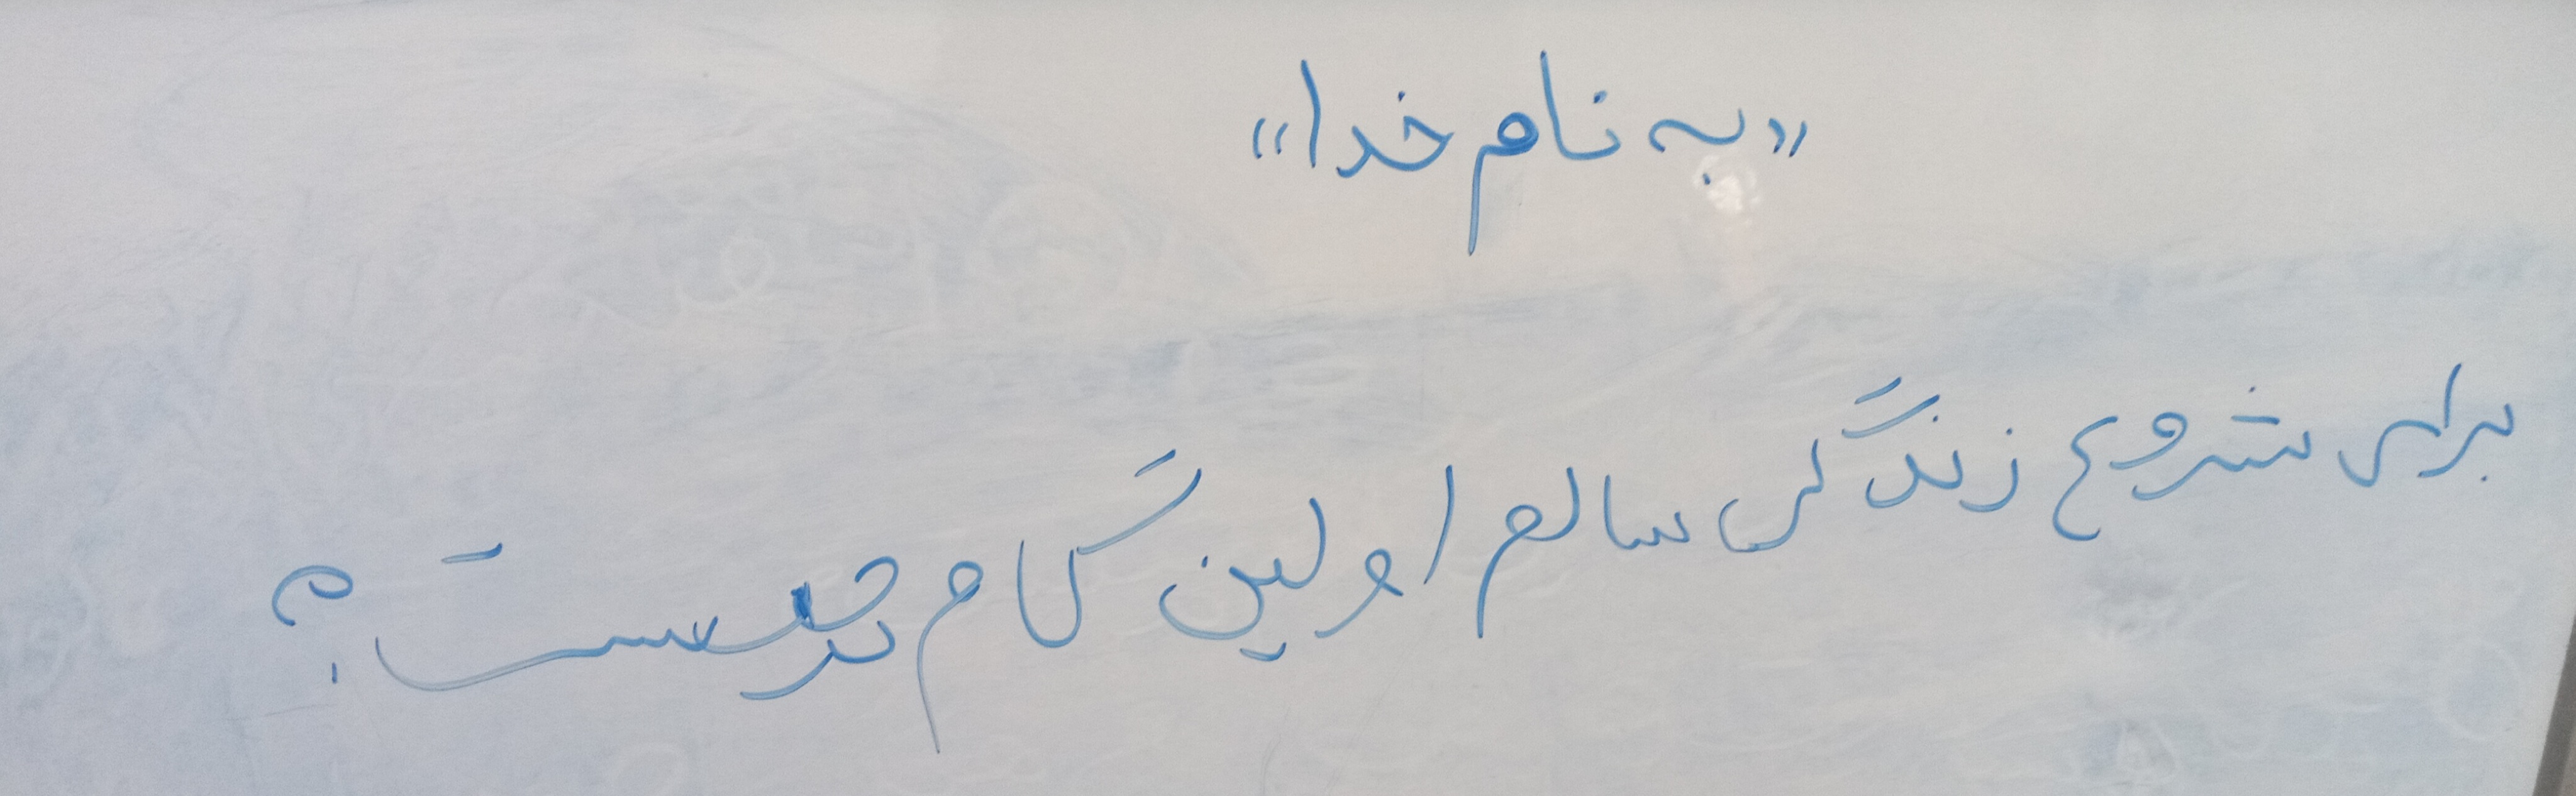 «به نام خدا»
برای شروع زندگی سالم اولین گام چیست؟